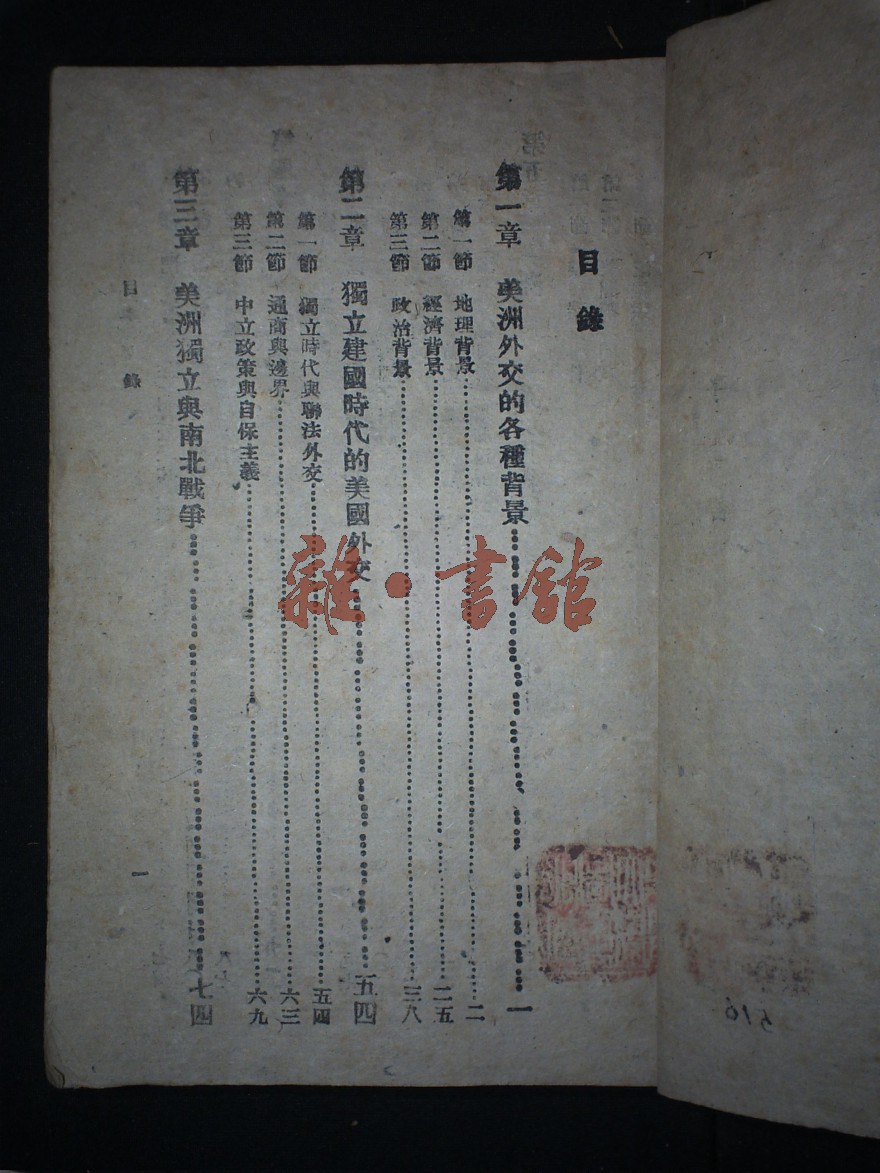 目錄
第一章　美洲外交的各種背景……一
第一節　地理背景……二
第二節　經濟背景……二五
第三節　政治背景……三八
第二章　獨立建國時代的美國外交……五四
第一節　獨立時代與聯法外交……五四
第二節　通商與邊界……六三
第三節　中立政策與自保主義……六九
第三章　美洲獨立與南北戰爭……七四
目錄
一
雜·書館